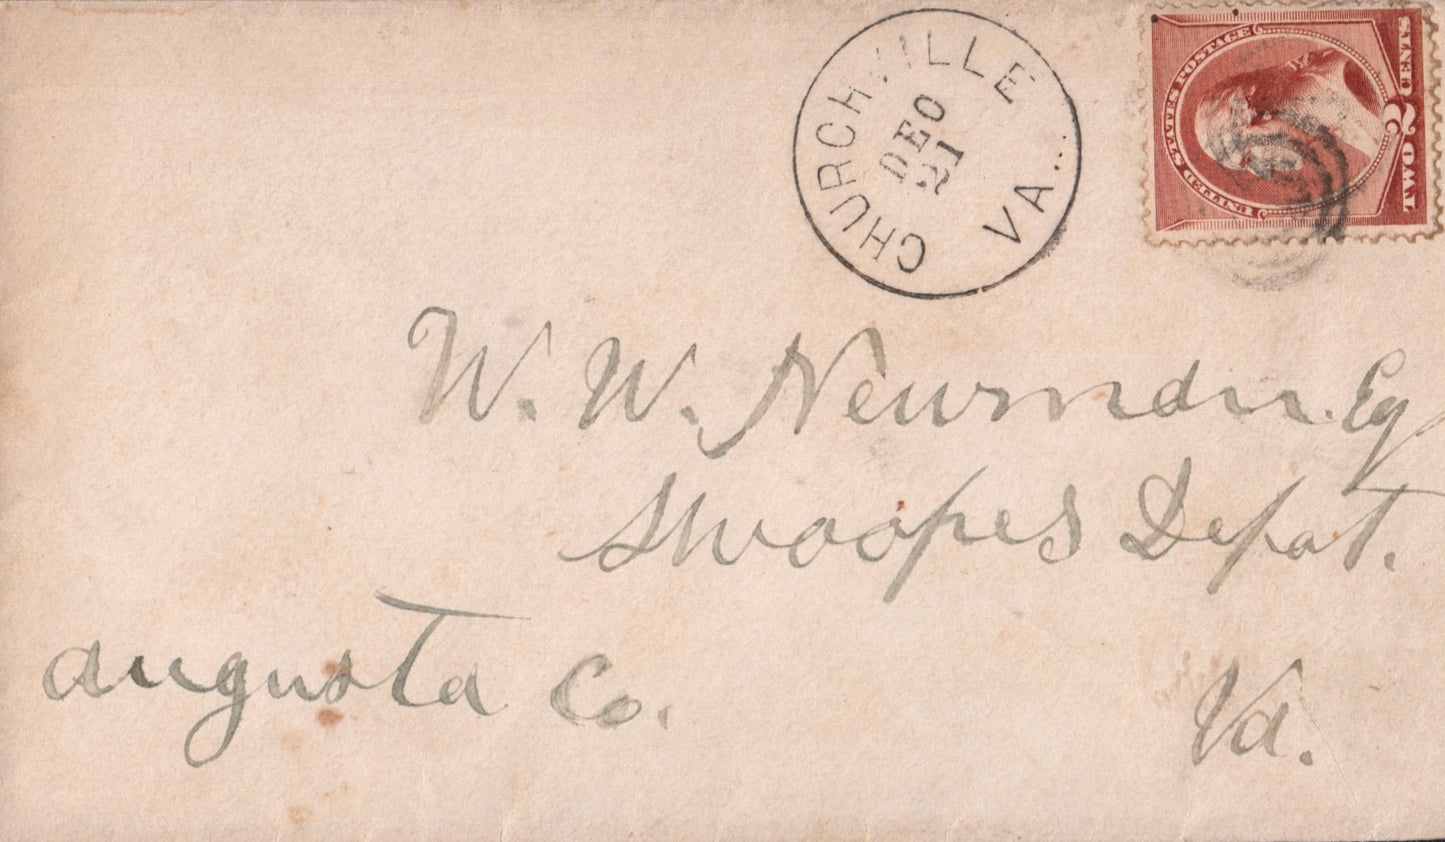 CHURCHVILLE
DEC
21
VA.
UNITED STATES POSTAGE
TWO 2 CENTS
W. W. Newman. Esq
Swoopes Depot.
Augusta Co.
Va.